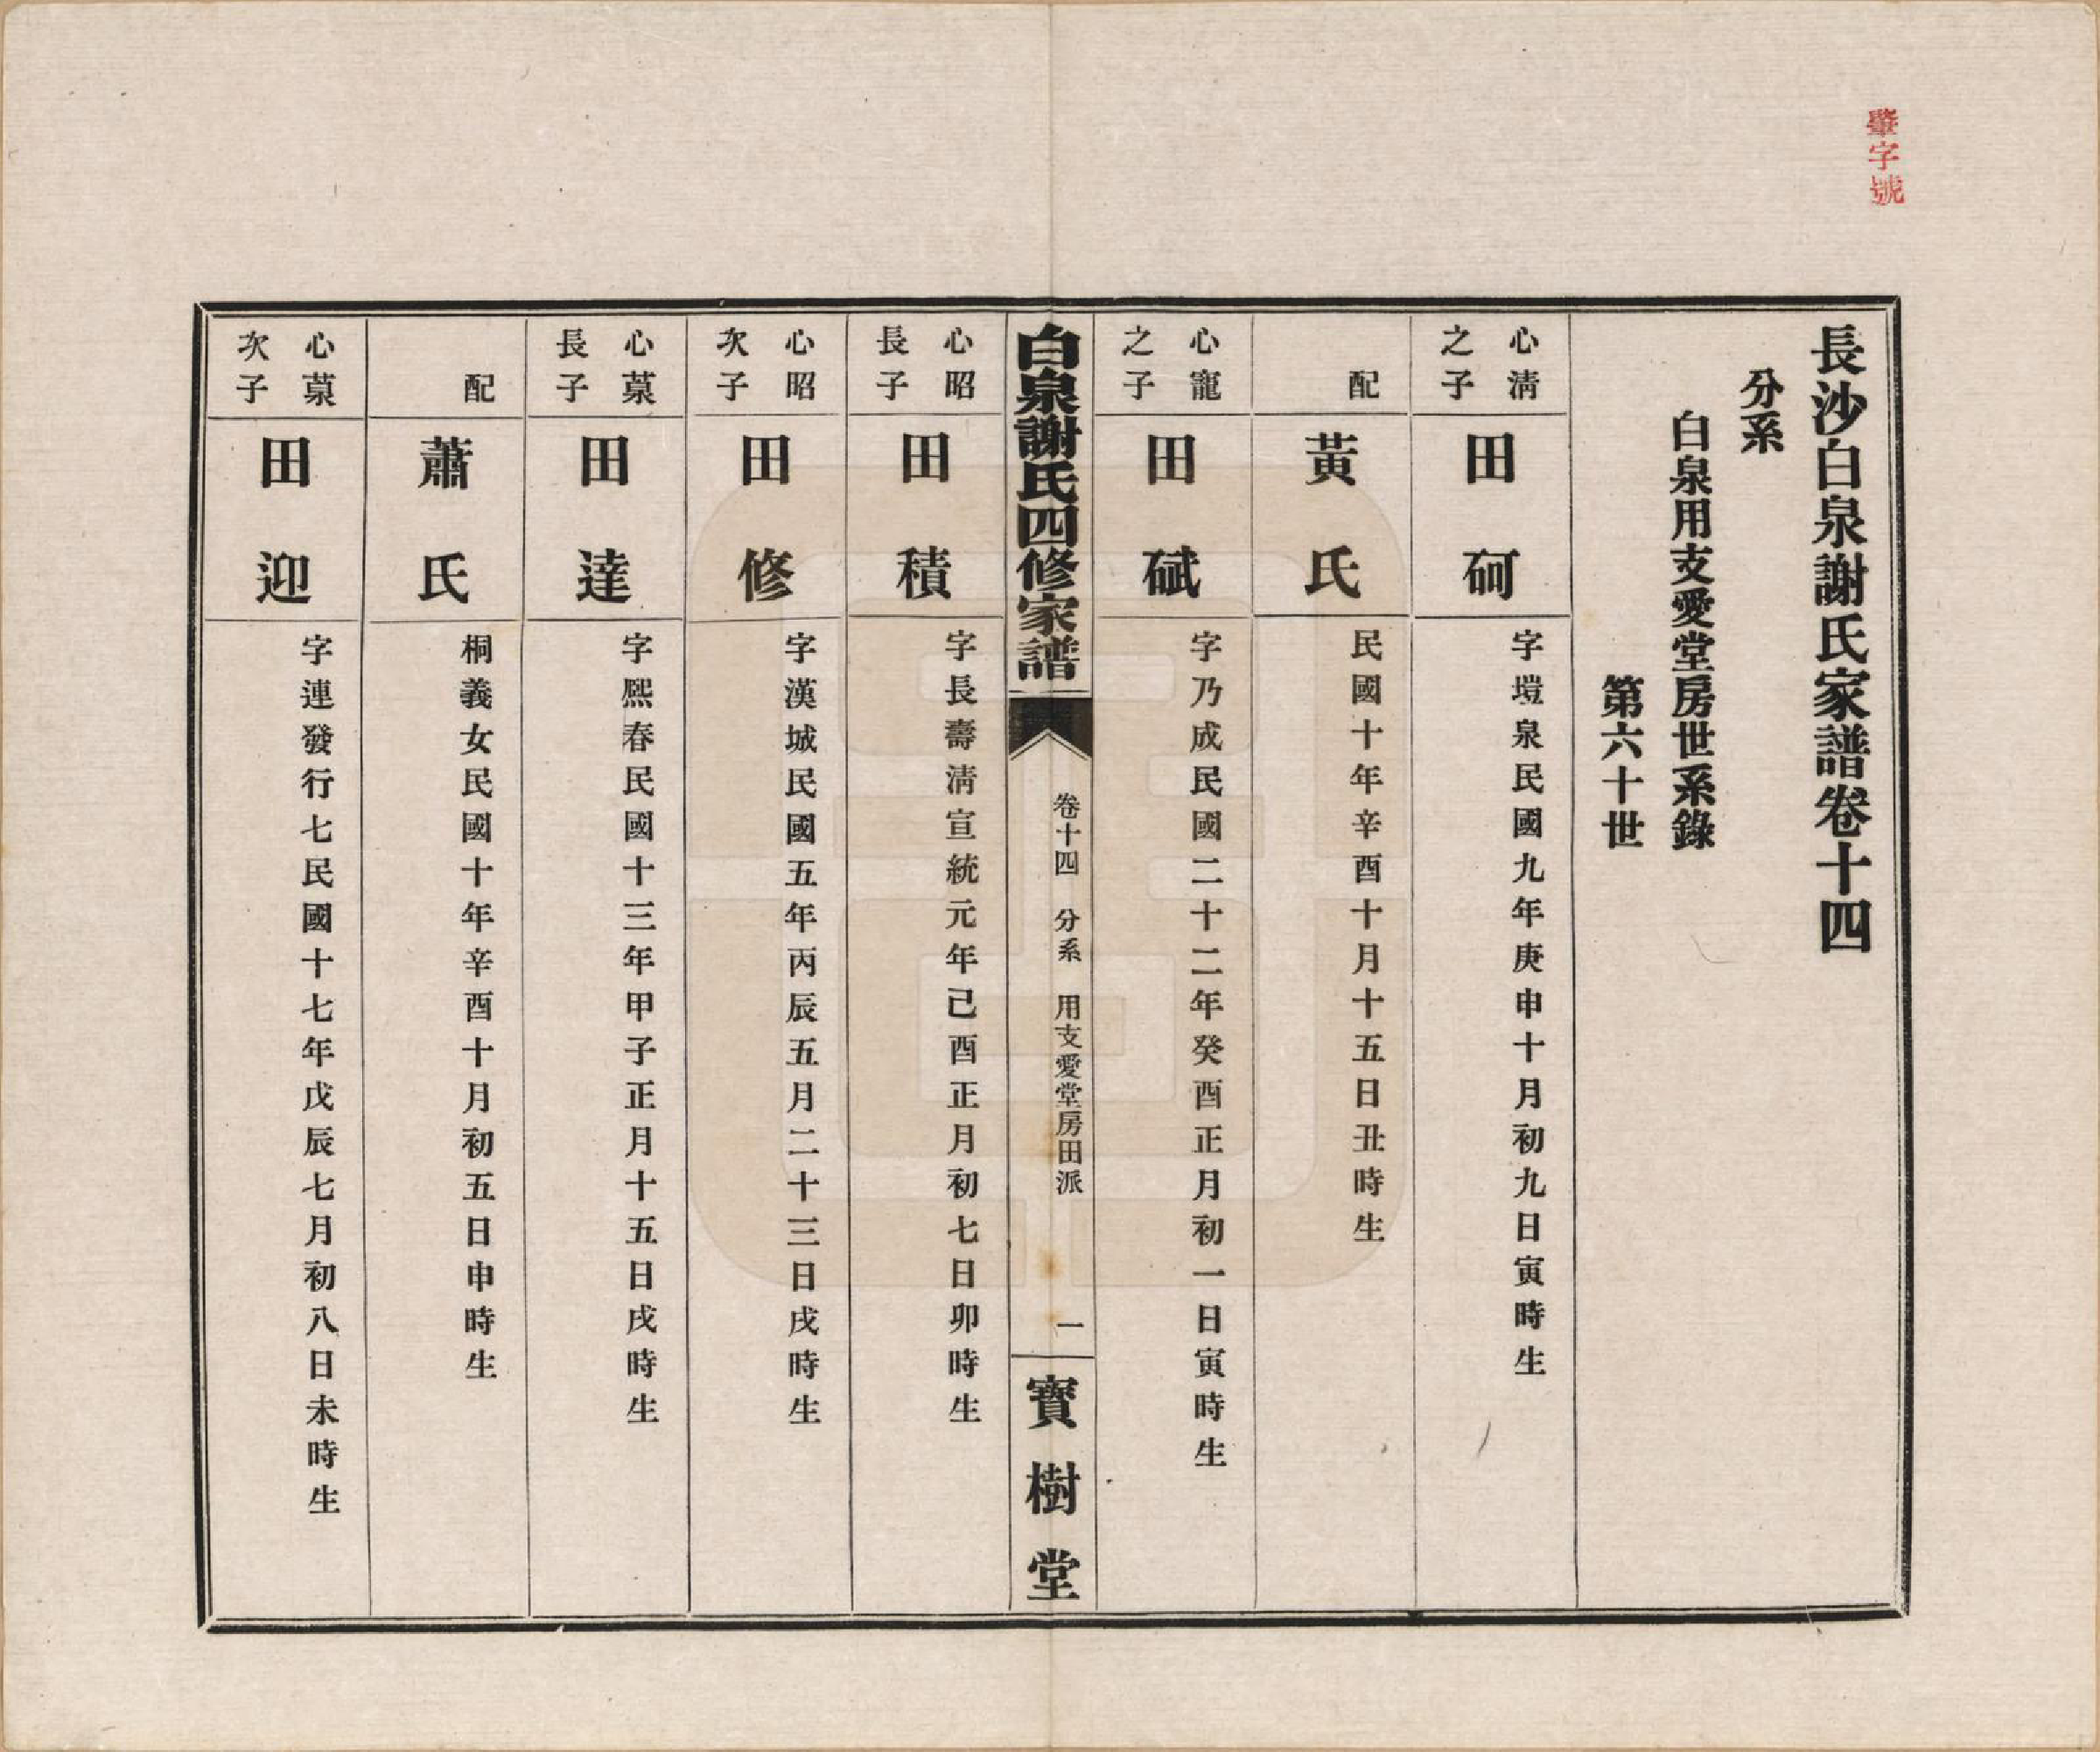 肇字號
長沙白泉謝氏家譜卷十四
分系
白泉用支愛堂房世系錄
第六十世
心淸
之子
田砢
字塏泉民國九年庚申十月初九日寅時生
配
黃氏
民國十年辛酉十月十五日丑時生
心寵
之子
田碔
字乃成民國二十二年癸酉正月初一日寅時生
白泉謝氏四修家譜
卷十四 分系 用支愛堂房田派
一
寶樹堂
心昭
長子
田積
字長壽淸宣統元年己酉正月初七日卯時生
心昭
次子
田修
字漢城民國五年丙辰五月二十三日戌時生
心菒
長子
田達
字熙春民國十三年甲子正月十五日戌時生
配
蕭氏
桐義女民國十年辛酉十月初五日申時生
心菒
次子
田迎
字連發行七民國十七年戊辰七月初八日未時生